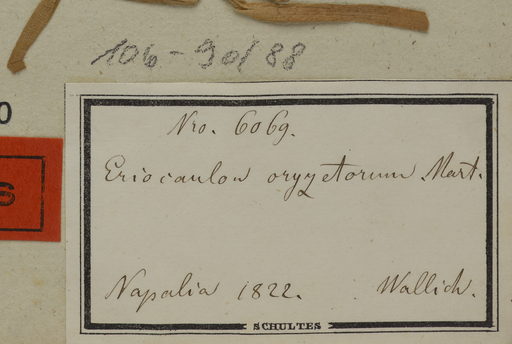 106-90/88
0
S
Nro. 6069.
Eriocaulon oryzetorum Mart.
Napalia 1822. Wallich.
SCHULTES